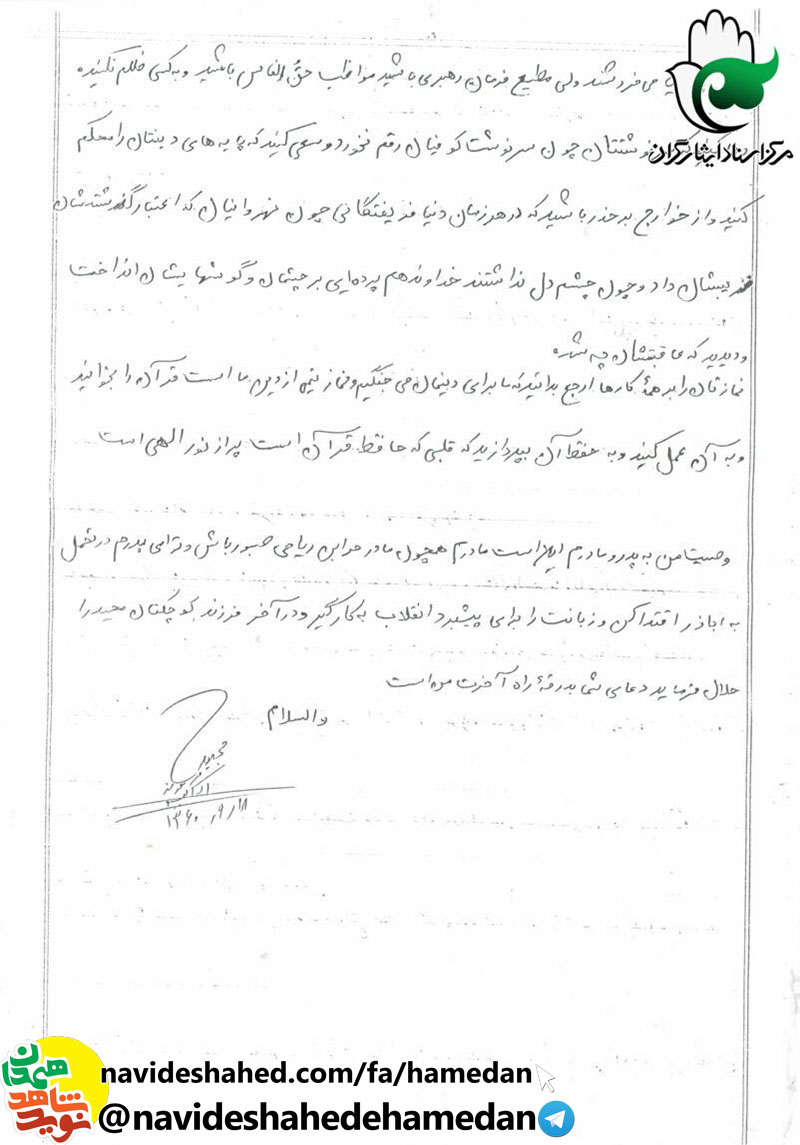 می‌فروشند ولی مطیع فرمان رهبری باشید مواظب حق الناس باشید و به کسی ظلم نکنید
سرنوشتتان چون سرنوشت کوفیان رقم نخورد و سعی کنید که پایه های دینتان را محکم
مرکز اسناد ایثارگران
کنید و از خوارج بر حذر باشید که در هر زمان دنیا فریفتگانی چون نهروانیان که اعتبار گذشته‌شان
فریبشان داد و چون چشم دل نداشتند خداوند هم پرده‌ایی بر چشمان و گوشهایشان انداخت
و دیدید که عاقبتشان چه شد
نمازتان را بر همهٔ کارها ارجح بدانید که ما برای دینمان می جنگیم و نماز نیمی از دین ما است قرآن را بخوانید
و به آن عمل کنید و به حفظ آن بپردازید که قلبی که حافظ قرآن است پر از نور الهی است
وصیت من به پدر و مادرم این است مادرم همچون مادر حر ابن ریاحی صبور باش و تو ای پدرم در تحمل
به اباذر اقتدا کن و زبانت را برای پیشبرد انقلاب به کار گیر و در آخر فرزند کوچکتان مجید را
حلال فرمایید دعای شما بدرقهٔ راه آخرت من است
والسلام
مجید
۱۳۶۰
نوید شاهد همدان
navideshahed.com/fa/hamedan
@navideshahedehamedan